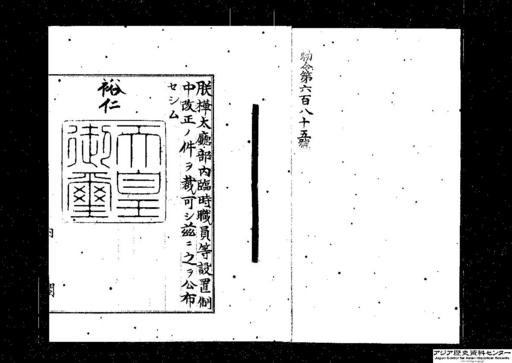 勅令第六百八十五號
朕樺太廳部内臨時職員等設置制
中改正ノ件ヲ裁可シ茲ニ之ヲ公布
セシム
裕仁
天皇
御璽
内
閣
アジア歴史資料センター
Japan Center for Asian Historical Records